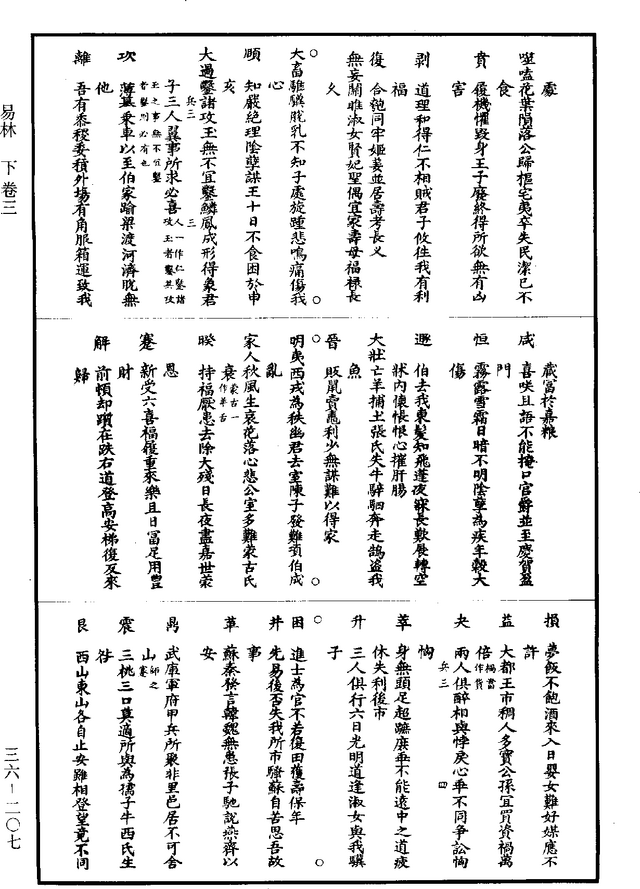 處
噬嗑花葉隕落公歸樞宅夷卒失民潔已不
食
賁　履機懼毀身王子廢終得所欲無有凶
害
剥　道理和得仁不相賊君子攸徃我有利
福
復　合匏同牢姬姜並居壽考長乂
無妄關雎淑女賢妃聖偶宜家壽母福祿長
乆
大畜騅驥脫乳不知子處旋踵悲鳴痛傷我
心
頤　知嚴絶理陰孽謀王十日不食困於申
亥
大過鑿諸攻玉無不宜鑿鱗鳳成形得象君
兵三　三
子三人翼事所求必喜
人一作仁鑿諸攻玉者鑿其攻玉之事無不宜鑿者鑿則必有也
坎　薄暮乘車以至伯家踰梁渡河濟脫無
他
離　吾有黍稷委積外場有角服箱運致我
藏富於嘉糧
咸　喜咲且語不能掩口官爵並至慶賀盈
門
恒　霧露雪霜日暗不明陰孽為疾年穀大
傷
遯　伯去我東髮如飛蓬夜寐長歎展轉空
牀內懷悵恨心摧肝腸
大壯亡羊捕土張氏失牛騂駠奔走鵠盗我
魚
晉　販鼠賣鼃利少無謀難以得家
明夷西戎為秩幽君去室陳子發難項伯成
亂
家人秋風生哀花落心悲公室多難蒙古氏
衰
蒙古一作羊舌
睽　持福厭患去除大殘日長夜盡嘉世蒙
恩
蹇　新受六喜福履重來樂且日富足用豐
財
解　前頓却躓在跌右道登高安梯復反來
歸
損　夢飯不飽酒來入日嬰女難好媒應不
許
益　大都王市稠人多寶公孫宜買資禍萬
倍
禍當作貨
夬　兩人俱醉相與悖戾心乖不同爭訟恟
兵三　四
恟
萃　身無頭足超蹠䆃乖不能遠中之道疾
休失利後市
升　三人俱行六日光明道逢淑女與我驥
子
困　進士為官不若復田獲壽保年
井　先易後否失我所市騷蘇自苦思吾故
事
革　蘇秦發言韓魏無患張子馳說燕齊以
安
鼎　武庫軍府甲兵所聚非里邑居不可舍
山
師之蹇
震　三桃三口莫適所與為孺子牛西氏生
咎
艮　西山東山各自止安雖相登望竟不同
易林　下卷三
三六－二〇七